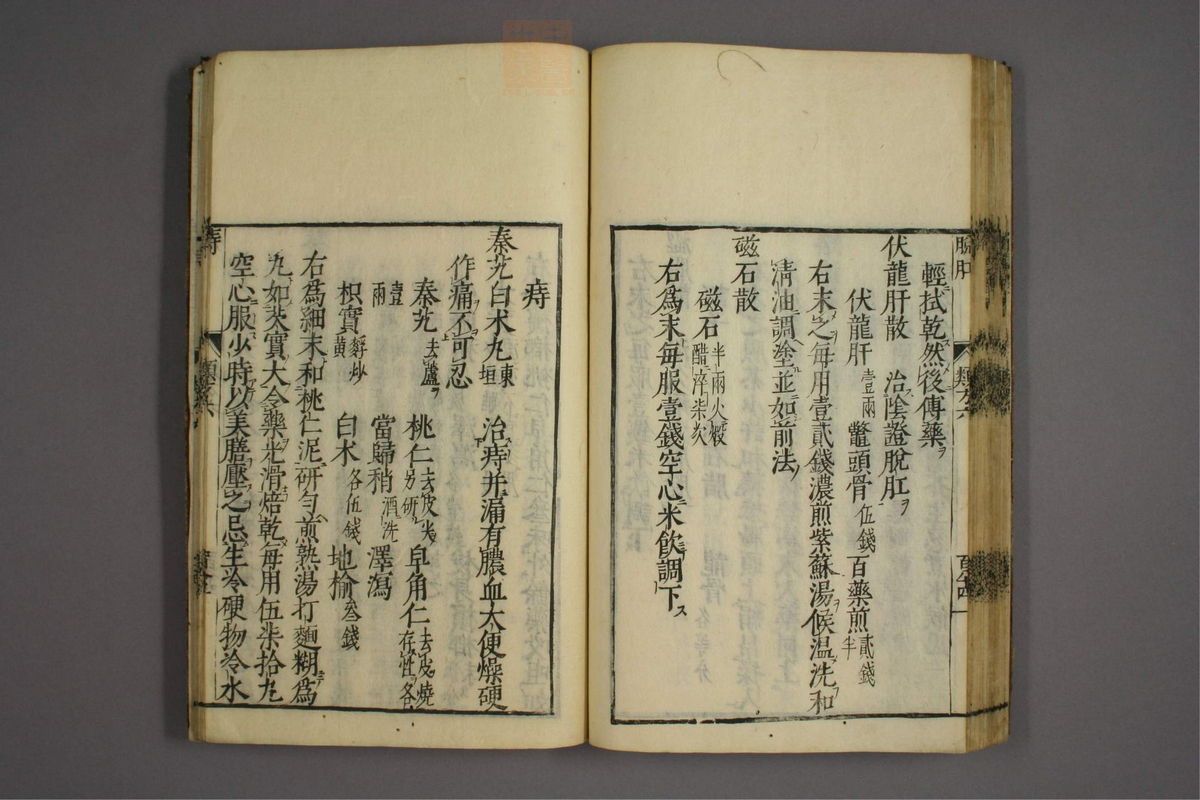 脫肛
輕拭乾然後傅藥ヲ
伏龍肝散 治陰證脫肛ヲ
伏龍肝 壹兩 鼈頭骨 伍錢 百藥煎 貳錢半
右末之每用壹貳錢濃煎紫蘇湯候温洗和
清油調塗並如前法
磁石散
磁石 半兩火煅醋淬柒次
右為末每服壹錢空心米飲調下ス
痔
秦艽白术丸 東垣 治痔并漏有膿血大便燥硬
作痛不可忍
秦艽 去蘆 桃仁 去皮尖另研 皁角仁 去皮燒存性各
壹兩 當歸稍 酒洗 澤瀉
枳實 麩炒黃 白术 各伍錢 地榆 叁錢
右為細末和桃仁泥研勻煎熟湯打麵糊為
丸如芡實大令藥光滑焙乾每用伍柒拾丸
空心服少時以美膳壓之忌生冷硬物冷水
痔